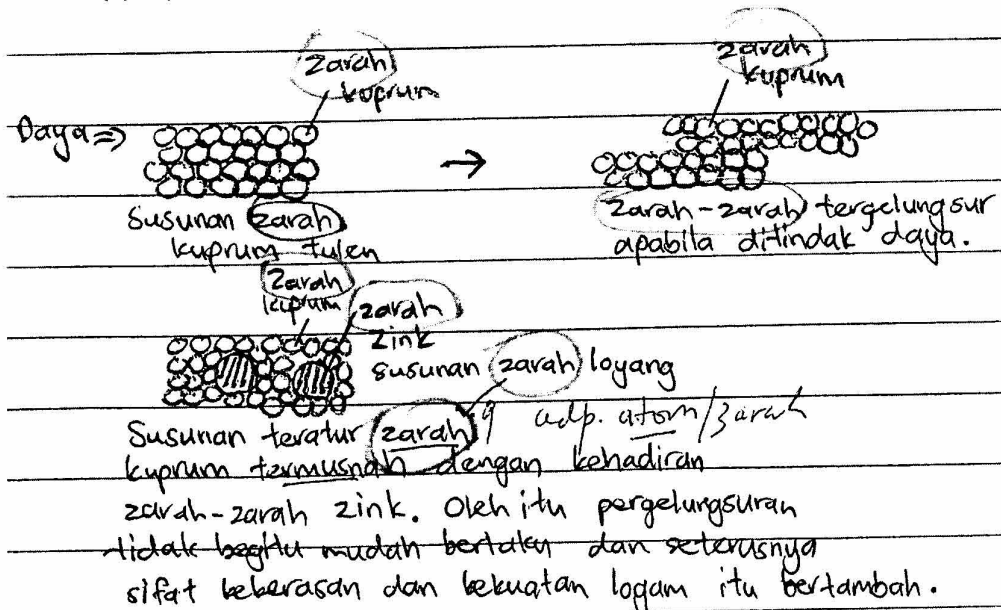 zarah
kuprum
zarah
kuprum
Daya ⇒
→
Susunan zarah
kuprum tulen
zarah-zarah tergelungsur
apabila ditindak daya.
zarah
kuprum
zarah
zink
susunan zarah loyang
Susunan teratur zarah
adp. atom/zarah
kuprum termusnah dengan kehadiran
zarah-zarah zink. Oleh itu pergelungsuran
tidak begitu mudah berlaku dan seterusnya
sifat kekerasan dan kekuatan logam itu bertambah.